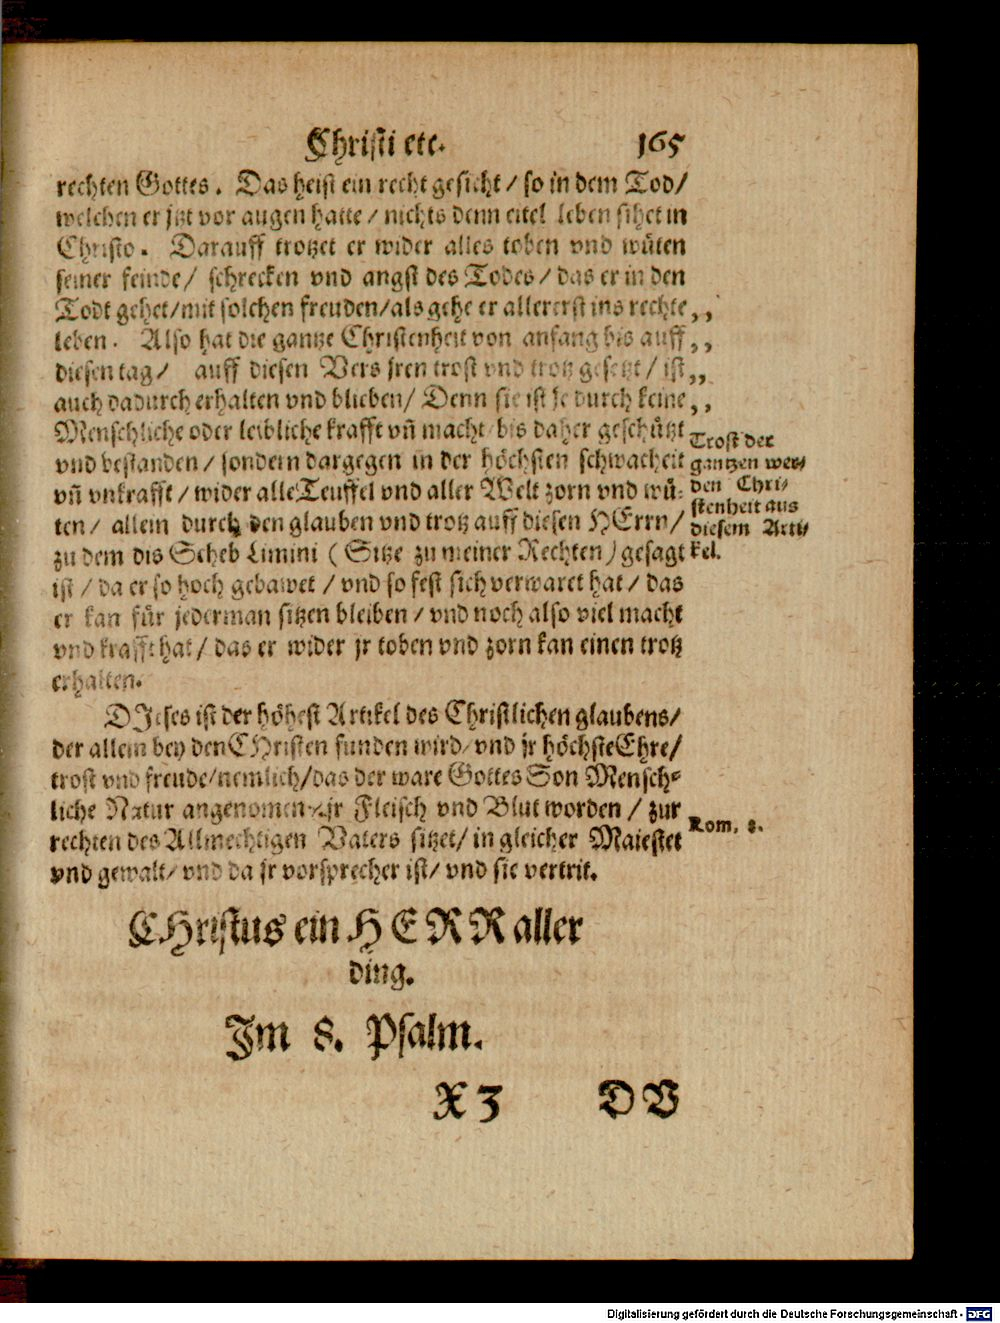 Christi etc. 165
rechten Gottes. Das heist ein recht gesicht / so in dem Tod /
welchen er jtzt vor augen hatte / nichts denn eitel leben sihet in
Christo. Darauff trotzet er wider alles toben vnd wüten
seiner feinde / schrecken vnd angst des Todes / das er in den
Todt gehet / mit solchen freuden / als gehe er allererst ins rechte ,,
leben. Also hat die gantze Christenheit von anfang bis auff ,,
diesen tag / auff diesen Vers jren trost vnd trotz gesetzt / ist ,,
auch dadurch erhalten vnd blieben / Denn sie ist je durch keine ,,
Menschliche oder leibliche krafft vñ macht bis daher geschützt
vnd bestanden / sondern dargegen in der höchsten schwacheit
vñ vnkrafft / wider alle Teuffel vnd aller Welt zorn vnd wü-
ten / allein durch den glauben vnd trotz auff diesen HErrn /
zu dem dis Scheb Limini ( Sitze zu meiner Rechten ) gesagt
ist / da er so hoch gebawet / vnd so fest sich verwaret hat / das
er kan für jederman sitzen bleiben / vnd noch also viel macht
vnd krafft hat / das er wider jr toben vnd zorn kan einen trotz
erhalten.
Trost der
gantzen wer-
den Chri-
stenheit aus
diesem Arti-
kel.
DJeses ist der höhest Artikel des Christlichen glaubens /
der allein bey den CHristen funden wird / vnd jr höchste Ehre /
trost vnd freude / nemlich / das der ware Gottes Son Mensch-
liche Natur angenomen / jr Fleisch vnd Blut worden / zur
rechten des Allmechtigen Vaters sitzet / in gleicher Maiestet
vnd gewalt / vnd da jr vorsprecher ist / vnd sie vertrit.
Rom. 8.
CHristus ein HERR aller
ding.
Im 8. Psalm.
X 3 DV
Digitalisierung gefördert durch die Deutsche Forschungsgemeinschaft - DFG